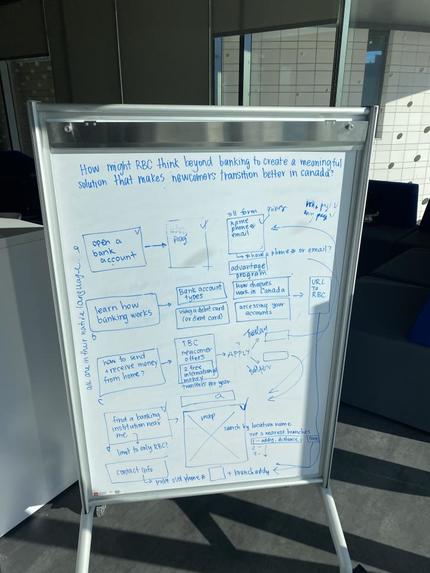 How might RBC think beyond banking to create a meaningful
solution that makes newcomers transition better in Canada?
all are in their native language
open a
bank
account
pay
fill form
name
phone #
email
phone # or email?
advantage
program
learn how
banking works
Bank account
types
using a debit card
(or client card)
how cheques
work in Canada
accessing your
accounts
URL
TO
RBC
how to send
+ receive money
from home?
RBC
newcomer
offers
2 free
international
money
transfers per year
APPLY
find a banking
institution near
me
limit to only RBC?
map
search by location name
addy, distance
contact info
+ branch addy